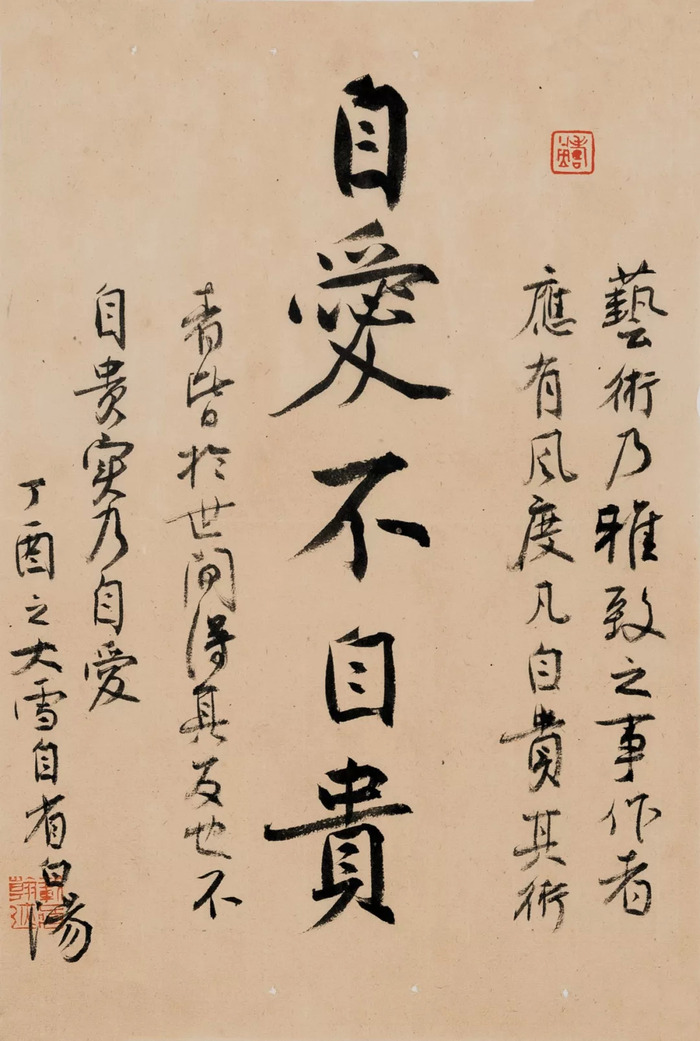 藝術乃雅致之事作者
應有風度凡自貴其術
自愛不自貴
者皆於世間得其反也不
自貴实乃自愛
丁酉之大雪自有白湯